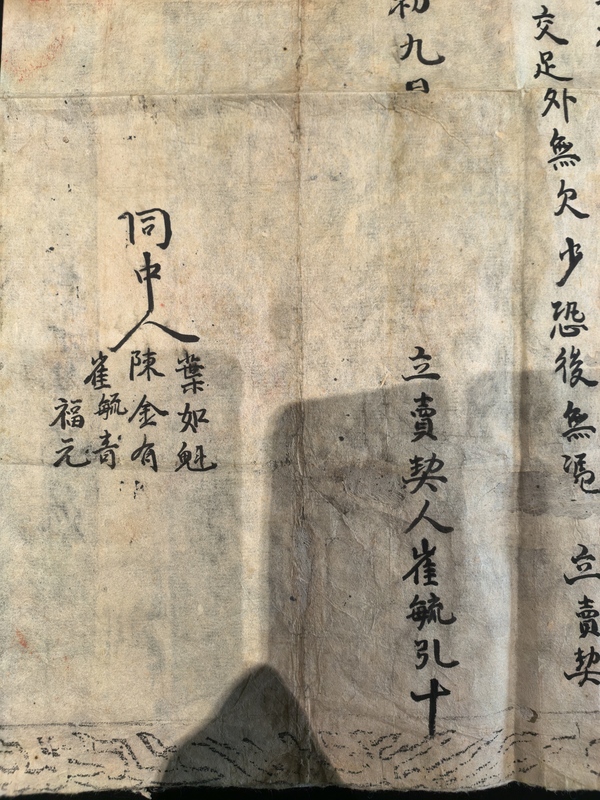 交足外無欠少恐後無馮 立賣契
初九日
立賣契人崔毓引十
同中人
葉如魁
陳金有
崔毓奇
福元